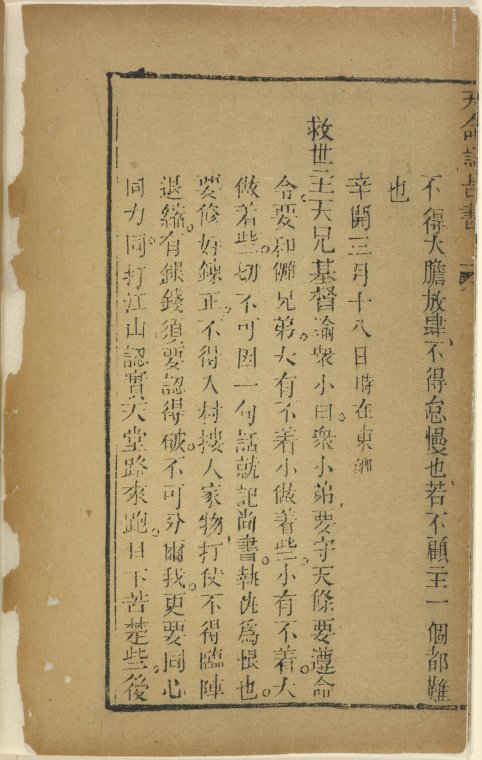 天命詔旨書
不得大膽放肆不得怠慢也若不顧主一個都難
也
辛開三月十八日時在東鄉
救世主天兄基督諭衆小曰衆小弟要守天條要遵命
令要和儺兄弟大有不着小做着些小有不着大
做着些一切不可因一句話就記尚書執仇爲恨也
要修好鍊正不得入村搜人家物打仗不得臨陣
退縮有銀錢須要認得破不可分爾我更要同心
同力同打江山認實天堂路來跑目下苦楚些後